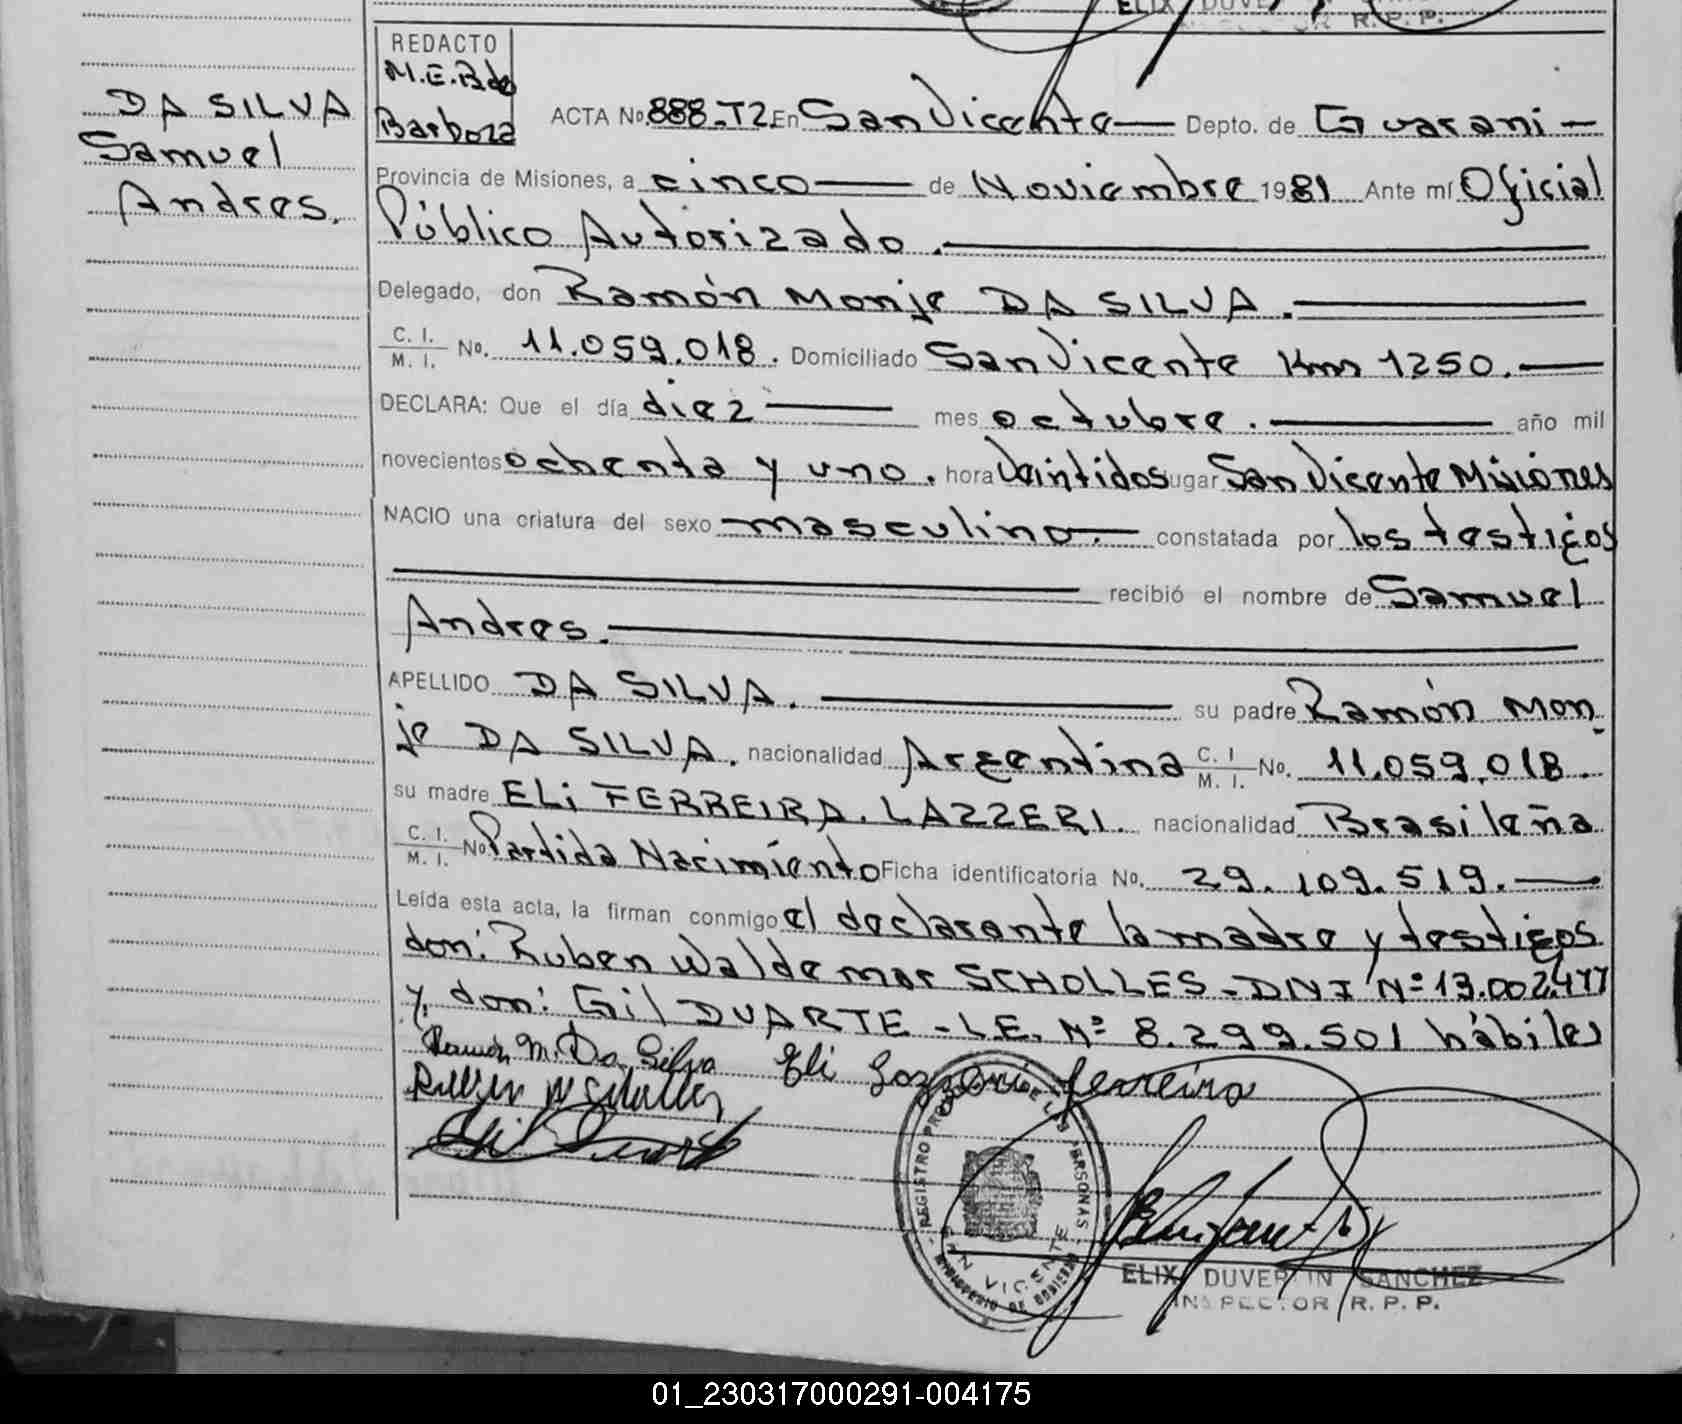 ELIX DUVE
R. P. P.
REDACTO
M.E.B de
Barboza
DA SILVA
Samuel
Andres.
ACTA No. 888-T2 En San Vicente Depto. de Guarani
Provincia de Misiones, a cinco de Noviembre 1981 Ante mí Oficial
Público Autorizado.
Delegado, don Ramón Monje DA SILVA.
C. I. M. I. No. 11.059.018. Domiciliado San Vicente Km 1250.
DECLARA: Que el día diez mes octubre. año mil
novecientos ochenta y uno. hora Veintidos lugar San Vicente Misiones
NACIO una criatura del sexo masculino. constatada por los testigos
recibió el nombre de Samuel
Andres.
APELLIDO DA SILVA. su padre Ramón Mon
je DA SILVA. nacionalidad Argentina C. I. M. I. No. 11.059.018.
su madre ELi FERREIRA. LAZZERI. nacionalidad Brasileña
C. I. M. I. No Partida Nacimiento Ficha identificatoria No. 29.109.519.
Leída esta acta, la firman conmigo el declarante la madre y testigos
don: Ruben Waldemar SCHOLLES-DNI Nº 13.002.477
y. don: Gil DUARTE-L.E. Nº 8.299.501 hábiles
Ramón M. Da Silva Eli Lazzeri Ferreira
REGISTRO PROVINCIAL DE LAS PERSONAS
SAN VICENTE
MINISTERIO DE GOBIERNO
ELIX DUVERLIN SANCHEZ
INSPECTOR R. P. P.
01_230317000291-004175